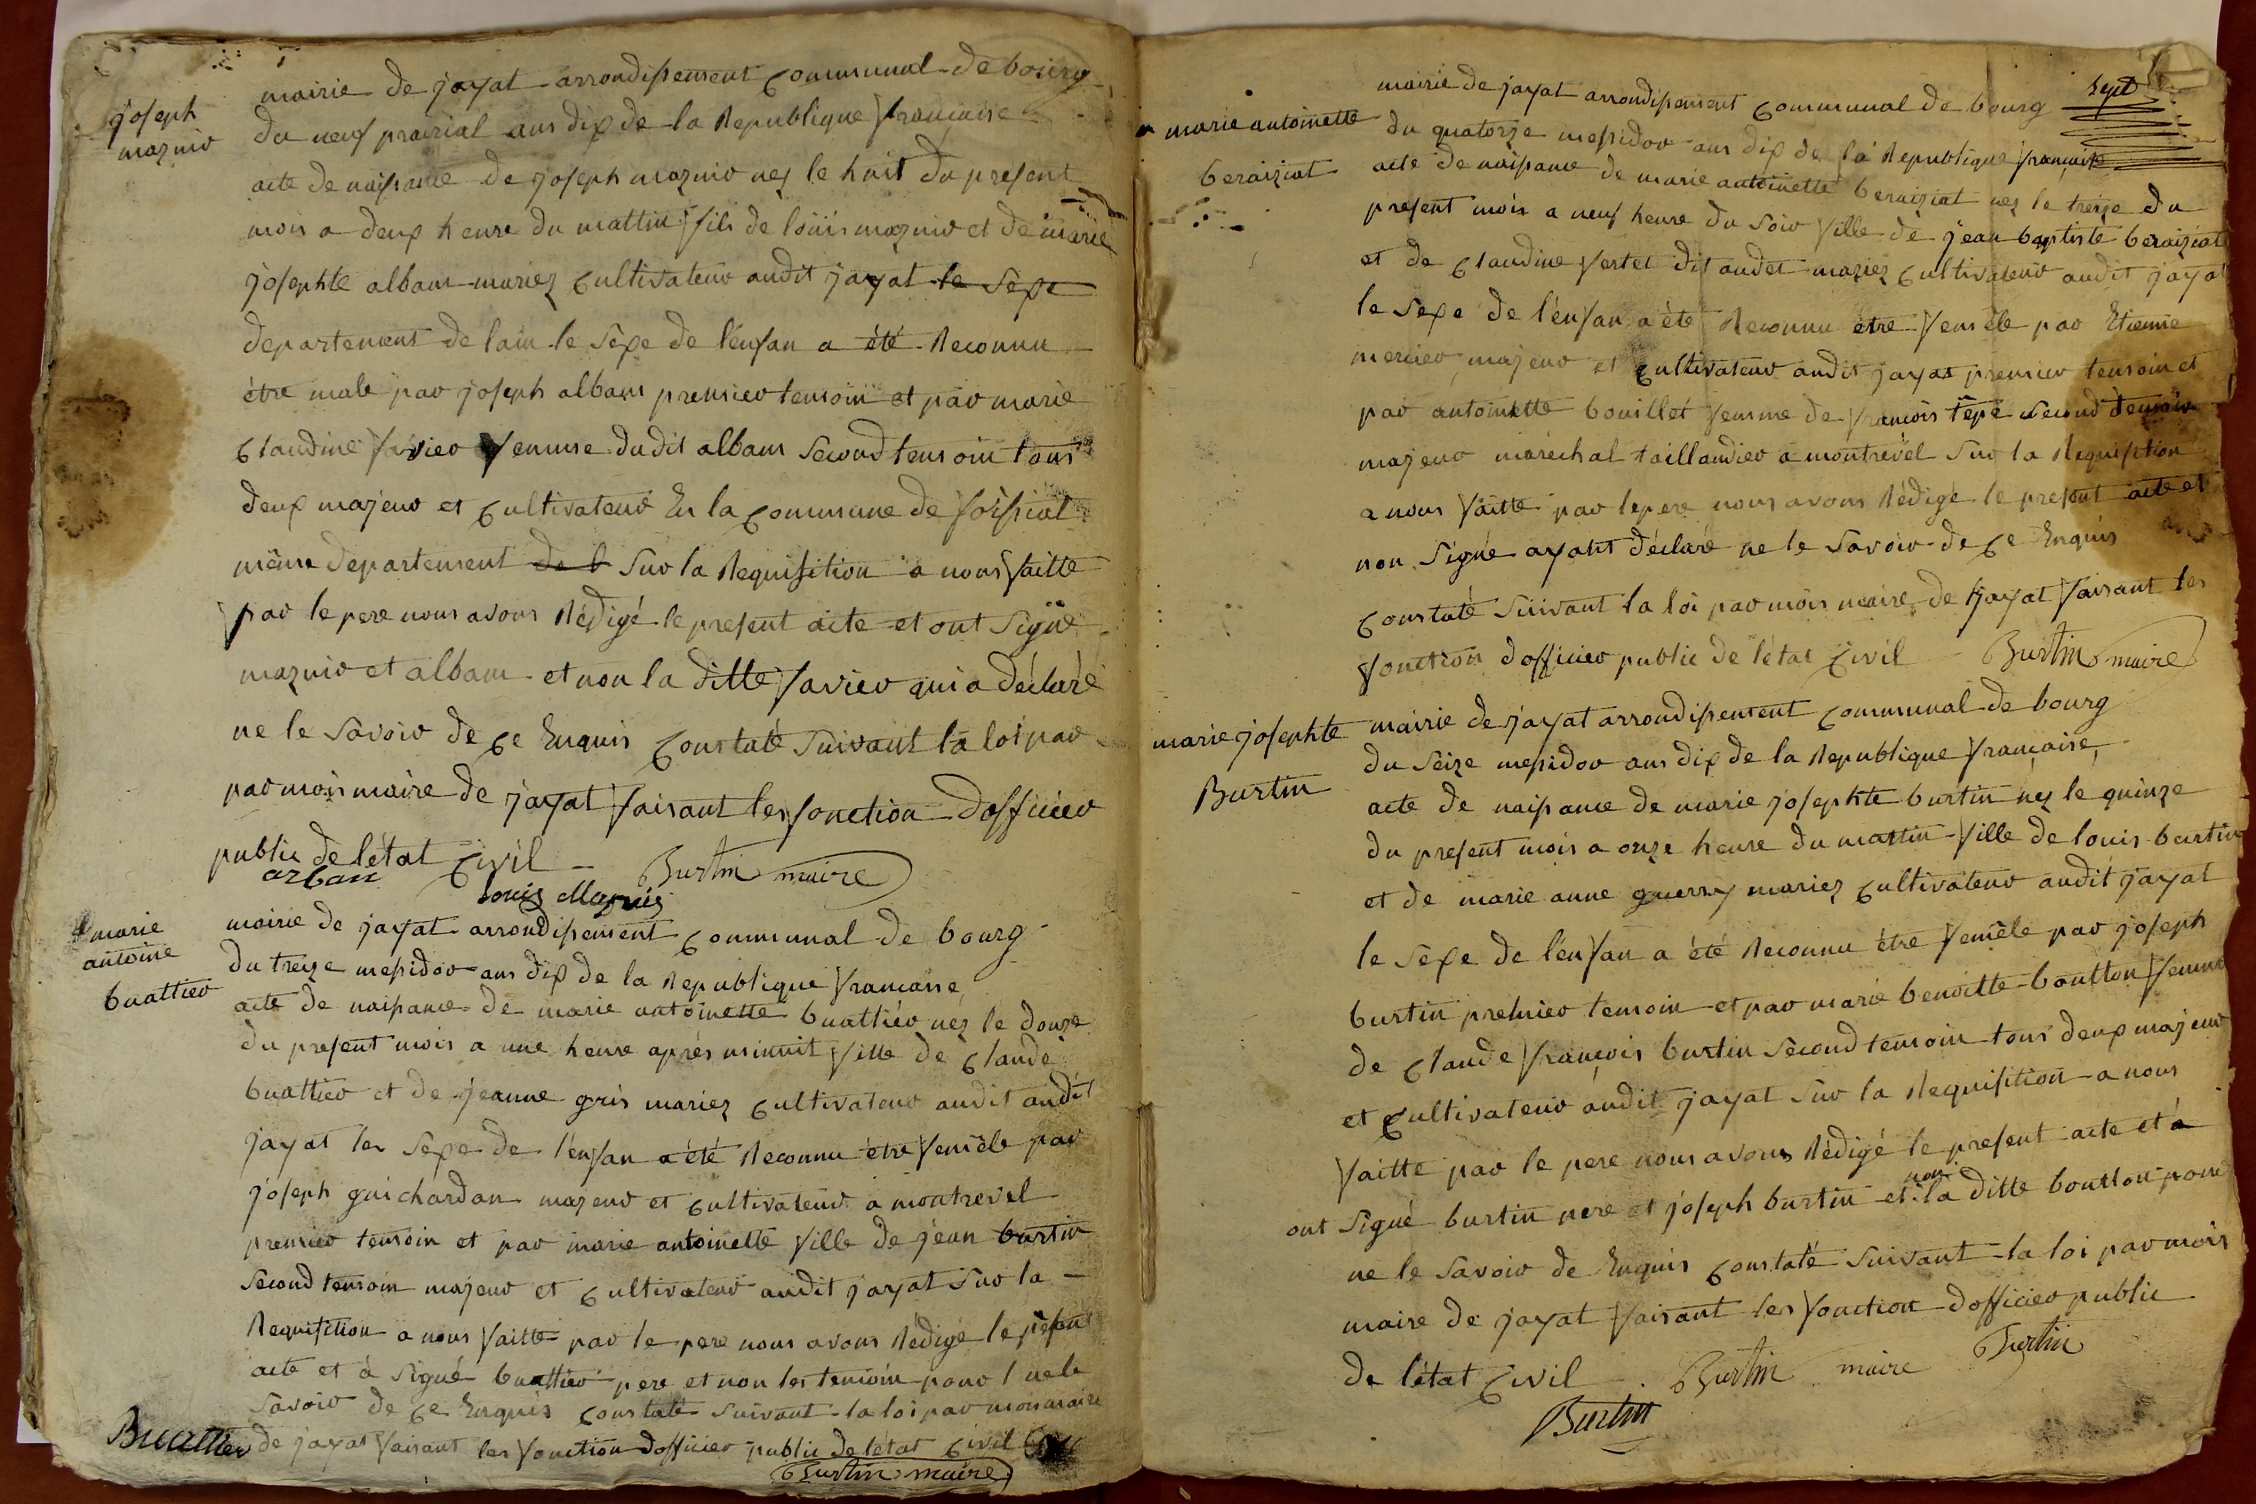 joseph
maznio
mairie de jayat arrondissement communal de bourg
du neuf prairial ans dix de la Republique française
acte de naissance de joseph maznio nez le huit du present
mois a deux heure du mattin fils de loüis maznio et de marie
josephte alban mariez cultivateur audit jayat le sexe
departement de lain le sexe de lénfan a été Reconnu
étre male par joseph albans premier temoin et par marie
claudine favier femme dudit albans second temoin tous
deux majeur et cultivateur En la commune de foissiat
même departement de l sur la Requisition a nous faitte
par le pere nous avons Rédigé le present acte et ont signé
maznio et alban et non la ditte favier qui a déclaré
ne le savoir de ce Enquis constaté suivant la loi par
par mois maire de jayat faisant les fonction dofficier
public de létat civil Burtin maire
arban
louis Maznis
marie
antoine
buattier
mairie de jayat arrondissement communal de bourg
du treize messidor ans dix de la Republique francaise
acte de naissance de marie antoinette buattier nez le douze
du present mois a une heure aprés minuit fille de claude
buattier et de jeanne gris mariez cultivateur audit audit
jayat les sexe de lénfan a été Reconnu étre femêle par
joseph guichardan majeur et cultivateur a montrevel
premier temoin et par marie antoinette fille de jéan burtin
second temoin majeur et cultivateur audit jayat sur la
Requisition a nous faitte par le pere nous avons Rédigé le présent
acte et à signé buattier pere et non les temoin pour l ne le
savoir de ce Enquis constaté suivant la loi par mois maire
de jayat faisant les fonction dofficier public de létat civil
Buattier
Burtin maire
sept
marie antoinette
beraiziat
mairie de jayat arrondissement communal de bourg
du quatorze messidor ans dix de la Republique française
acte de naissance de marie antoinette beraiziat nez le treize du
present mois a neuf heure du soir fille de jean baptiste beraiziat
et de claudine fertet dit audet mariez cultivateur audit jayat
le sexe de lénfan a été Reconnu étre femêle par Etienne
mercier majeur et cultivateur audit jayat premier temoin et
par antoinette bouillet femme de françois tepe second temoin
majeur maréchal taillandier a montrevel sur la Requisition
a nous faitte par le pere nous avons Rédigé le present acte et
non signé ayant déclaré ne le savoir de ce Enquis
constaté suivant la loi par mois maire de jayat faisant les
fonction dofficier public de létat civil Burtin maire
marie josephte
Burtin
mairie de jayat arrondissement communal de bourg
du seize messidor ans dix de la Republique française,
acte de naissance de marie josephte burtin nez le quinze
du present mois a onze heure du mattin fille de louis burtin
et de marie anne guerry mariez cultivateur audit jayat
le sexe de lénfan a été Reconnu étre femêle par joseph
burtin premier temoin et par marie benoitte boutton femme
de claude françois burtin second temoin tous deux majeur
et cultivateur audit jayat sur la Requisition a nous
faitte par le pere nous avons Rédigé le present acte et a
ont signé burtin pere et joseph burtin et non la ditte boutton pour
ne le savoir de Enquis constaté suivant la loi par mois
maire de jayat faisant les fonction dofficier public
de létat civil Burtin maire Burtin
Burtin